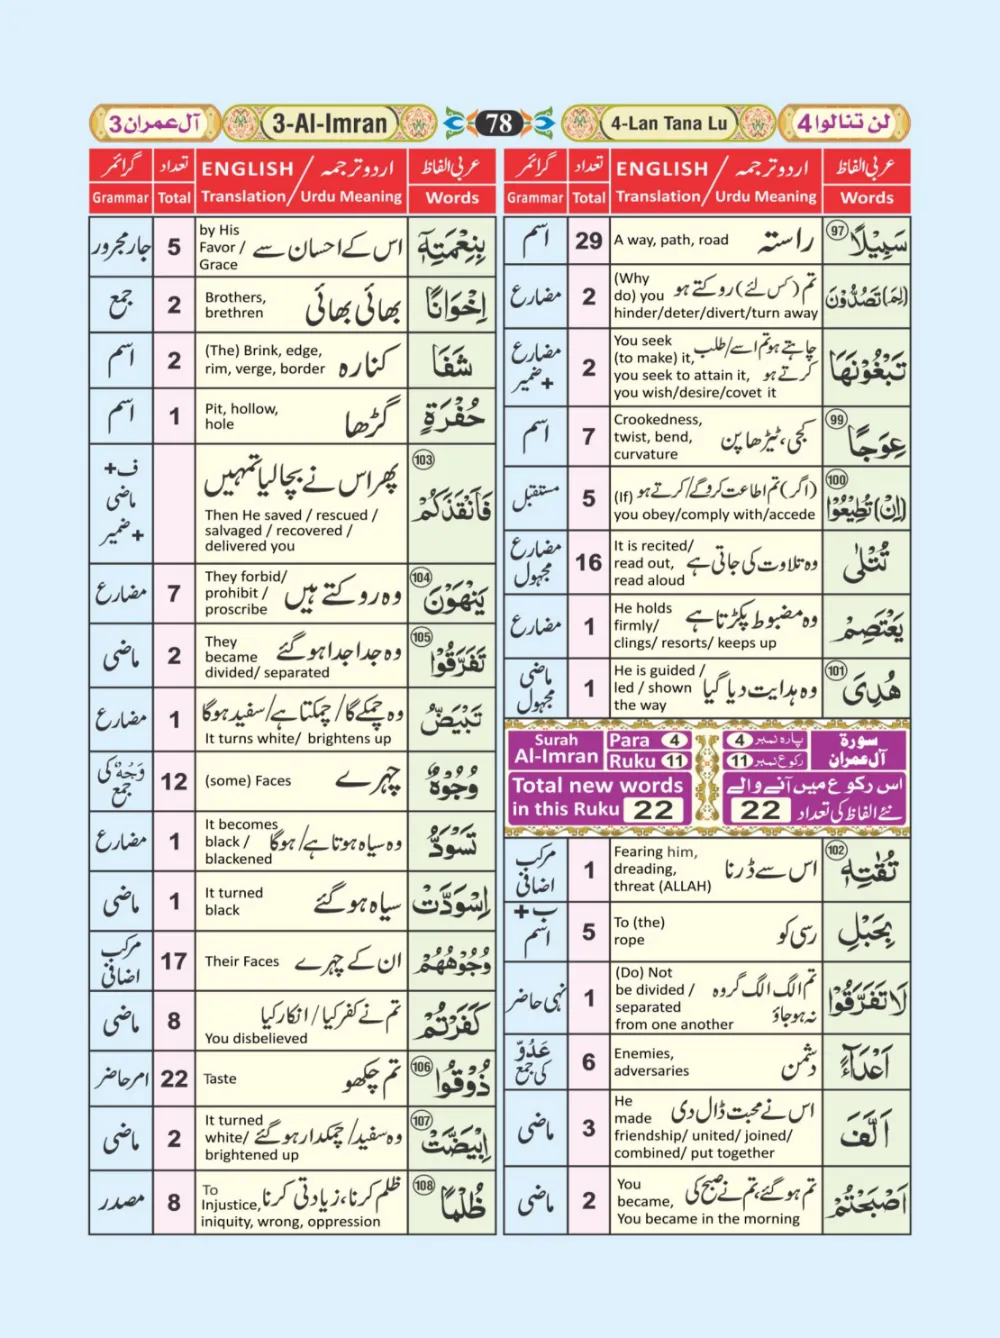 لن تنالوا 4
4-Lan Tana Lu
78
3-Al-Imran
آل عمران 3
عربی الفاظ
Words
ENGLISH / اردو ترجمہ
Translation/ Urdu Meaning
تعداد
Total
گرائمر
Grammar
97
سَبِيْلًا
راستہ
A way, path, road
29
اسم
(لِمَ) تَصُدُّوْنَ
تم (کس لئے) روکتے ہو
(Why
do) you
hinder/deter/divert/turn away
2
مضارع
تَبْغُوْنَهَا
چاہتے ہو تم اسے/طلب
کرتے ہو
You seek
(to make) it,
you seek to attain it,
you wish/desire/covet it
2
مضارع
+ضمیر
99
عِوَجًا
کجی، ٹیڑھا پن
Crookedness,
twist, bend,
curvature
7
اسم
100
(اِنْ) تُطِيْعُوْا
(اگر) تم اطاعت کرو گے/کرتے ہو
(If)
you obey/comply with/accede
5
مستقبل
تُتْلٰى
وہ تلاوت کی جاتی ہے
It is recited/
read out,
read aloud
16
مضارع
مجہول
يَعْتَصِمْ
وہ مضبوط پکڑتا ہے
He holds
firmly/
clings/ resorts/ keeps up
1
مضارع
101
هُدِيَ
وہ ہدایت دیا گیا
He is guided /
led / shown
the way
1
ماضی
مجہول
سورة
آل عمران
پارہ نمبر 4
رکوع نمبر 11
Para 4
Ruku 11
Surah
Al-Imran
اس رکوع میں آنے والے
نئے الفاظ کی تعداد 22
Total new words
in this Ruku 22
102
تُقٰتِهٖ
اس سے ڈرنا
Fearing him,
dreading,
threat (ALLAH)
1
مرکب
اضافی
بِحَبْلِ
رسی کو
To (the)
rope
5
ب+
اسم
لَا تَفَرَّقُوْا
تم الگ الگ گروہ
نہ ہو جاؤ
(Do) Not
be divided /
separated
from one another
1
نہی حاضر
اَعْدَآءً
دشمن
Enemies,
adversaries
6
عَدُوّ
کی جمع
اَلَّفَ
اس نے محبت ڈال دی
He
made
friendship/ united/ joined/
combined/ put together
3
ماضی
اَصْبَحْتُمْ
تم ہو گئے، تم نے صبح کی
You
became,
You became in the morning
2
ماضی
عربی الفاظ
Words
ENGLISH / اردو ترجمہ
Translation/ Urdu Meaning
تعداد
Total
گرائمر
Grammar
بِنِعْمَتِهٖٓ
اس کے احسان سے
by His
Favor /
Grace
5
جار مجرور
اِخْوَانًا
بھائی بھائی
Brothers,
brethren
2
جمع
شَفَا
کنارہ
(The) Brink, edge,
rim, verge, border
2
اسم
حُفْرَةٍ
گڑھا
Pit, hollow,
hole
1
اسم
103
فَاَنْقَذَكُمْ
پھر اس نے بچا لیا تمہیں
Then He saved / rescued /
salvaged / recovered /
delivered you
ف+
ماضی
+ضمیر
104
يَنْهَوْنَ
وہ روکتے ہیں
They forbid/
prohibit /
proscribe
7
مضارع
105
تَفَرَّقُوْا
وہ جدا جدا ہو گئے
They
became
divided/ separated
2
ماضی
تَبْيَضُّ
وہ چمکے گا/چمکتا ہے/سفید ہوگا
It turns white/ brightens up
1
مضارع
وُجُوْهٌ
چہرے
(some) Faces
12
وَجْهٌ کی
جمع
تَسْوَدُّ
وہ سیاہ ہوتا ہے/ہوگا
It becomes
black /
blackened
1
مضارع
اِسْوَدَّتْ
سیاہ ہو گئے
It turned
black
1
ماضی
وُجُوْهُهُمْ
ان کے چہرے
Their Faces
17
مرکب
اضافی
كَفَرْتُمْ
تم نے کفر کیا/انکار کیا
You disbelieved
8
ماضی
106
ذُوْقُوْا
تم چکھو
Taste
22
امر حاضر
107
اِبْيَضَّتْ
وہ سفید/چمکدار ہو گئے
It turned
white/
brightened up
2
ماضی
108
ظُلْمًا
ظلم کرنا، زیادتی کرنا
To
Injustice,
iniquity, wrong, oppression
8
مصدر